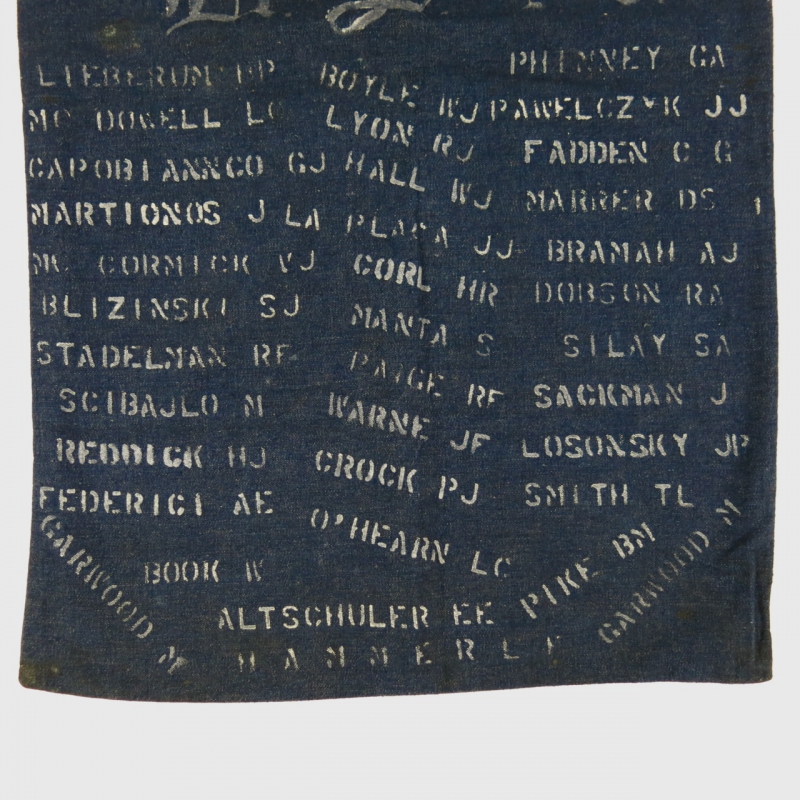 PHINNEY GA
LIEBERUM
BOYLE WJ
PAWELCZYK JJ
MC DOWELL LC
LYON RJ
FADDEN C G
CAPOBIANNCO GJ
HALL WJ
MARRER DS
MARTIONOS J
LA PLACA JJ
BRAMAH AJ
MC CORMICK VJ
CORL HR
DOBSON RA
BLIZINSKI SJ
MANTA S
SILAY SA
STADELMAN RF
PAIGE RF
SACKMAN J
SCIBAJLO M
WARNE JF
LOSONSKY JP
REDDICK HJ
CROCK PJ
SMITH TL
FEDERICI AE
O'HEARN LC
GARWOOD M
BOOK W
PIKE BM
GARWOOD M
ALTSCHULER EE
HAMMERLE